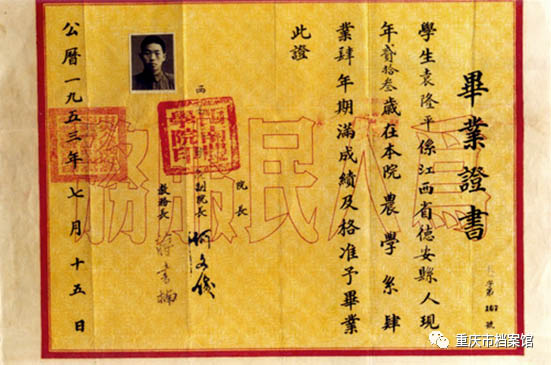 畢業證書
字第 號
學生袁隆平係江西省德安縣人現
年貳拾叁歲在本院農學系肆
業肆年期滿成績及格准予畢業
此證
院長
副院長 何文俊
教務長 蔣書楠
西南農學院印
公曆一九五三年七月十五日
爲人民服務
重庆市档案馆